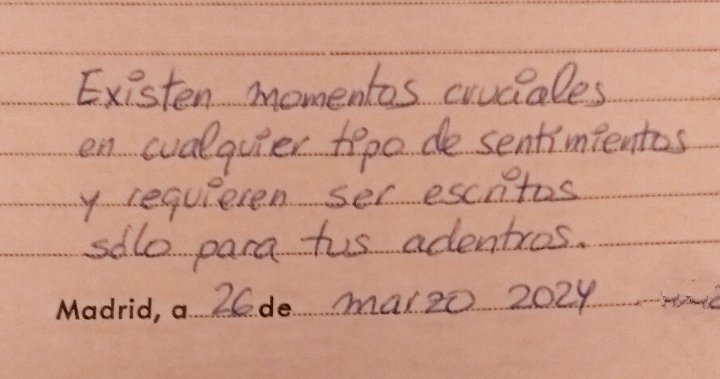 Existen momentos cruciales
en cualquier tipo de sentimientos
y requieren ser escritos
sólo para tus adentros.
Madrid, a 26 de marzo 2024